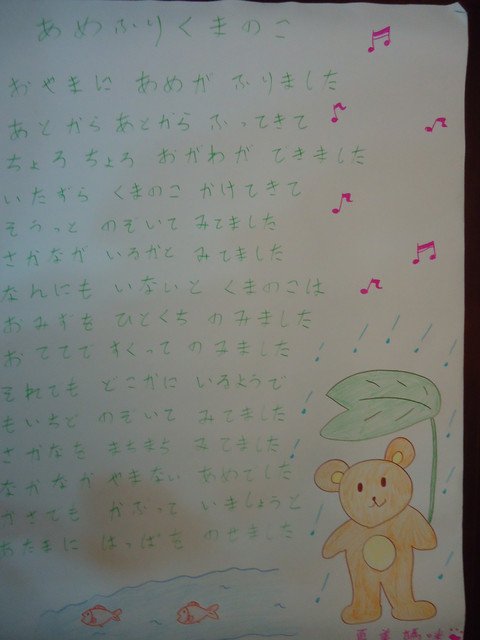 あめふりくまのこ
おやまに あめが ふりました
あとからあとから ふってきて
ちょろ ちょろ おがわが できました
いたずら くまのこ かけてきて
そうっと のぞいて みてました
さかなが いるかと みてました
なんにも いないと くまのこは
おみずを ひとくち のみました
おててで すくって のみました
それでも どこかに いるようで
もいちど のぞいて みてました
さかなを まちまち みてました
なかなか やまない あめでした
かさでも かぶって いましょうと
おたまに はっぱを のせました